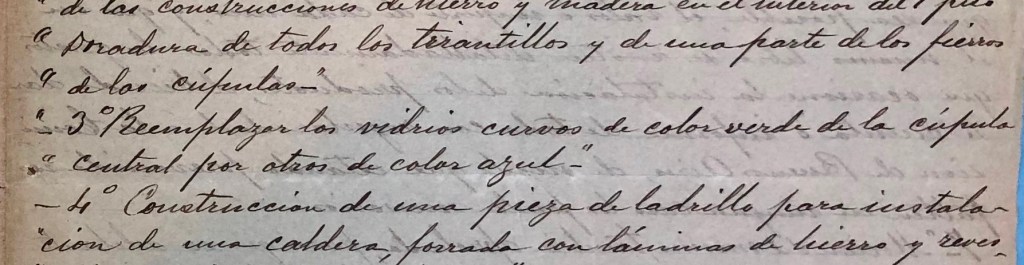 " de las construcciones de hierro y madera en el interior del 1º piso
" Doradura de todos los tirantillos y de una parte de los fierros
" de las cúpulas-"
" 3º Reemplazar los vidrios curvos de color verde de la cúpula
" central por otros de color azul-"
- 4º Construccion de una pieza de ladrillo para instala-
"cion de una caldera, forrada con láminas de hierro y reves-